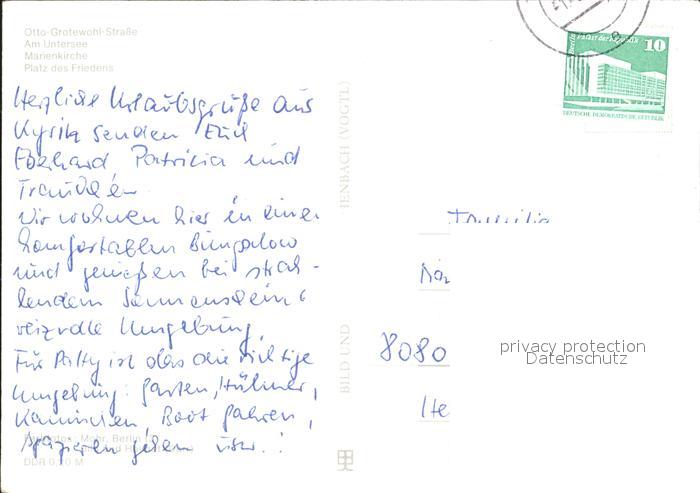 Otto-Grotewohl-Straße
Am Untersee
Marienkirche
Platz des Friedens
Herzliche Urlaubsgrüße aus
Kyritz senden Euch
Eberhard Patricia und
Wir wohnen hier in einem
komfortablen Bungalow
und genießen bei strah-
lendem Sonnenschein
reizvolle Umgebung.
Für Patty ist das die richtige
Umgebung: Garten, Hühner,
Kaninchen, Boot fahren,
spazieren gehen usw.!
Mohr, Berlin
DDR 0,20 M
BILD UND
IENBACH (VOGTL)
Berlin Palast der Republik
10
DEUTSCHE DEMOKRATISCHE REPUBLIK
Familie
8080
privacy protection
Datenschutz